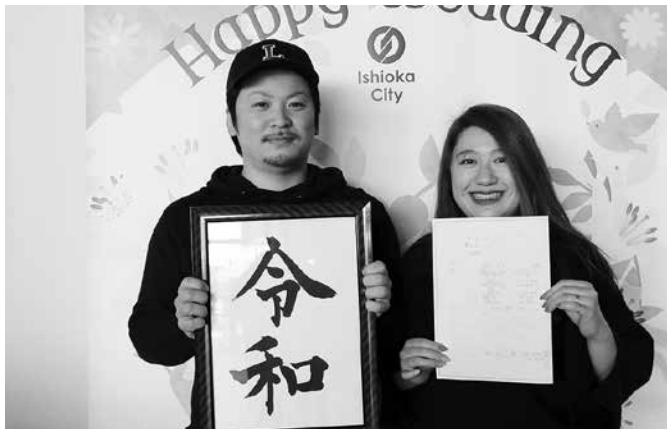 Happy Wedding
L
Ishioka
City
令
和